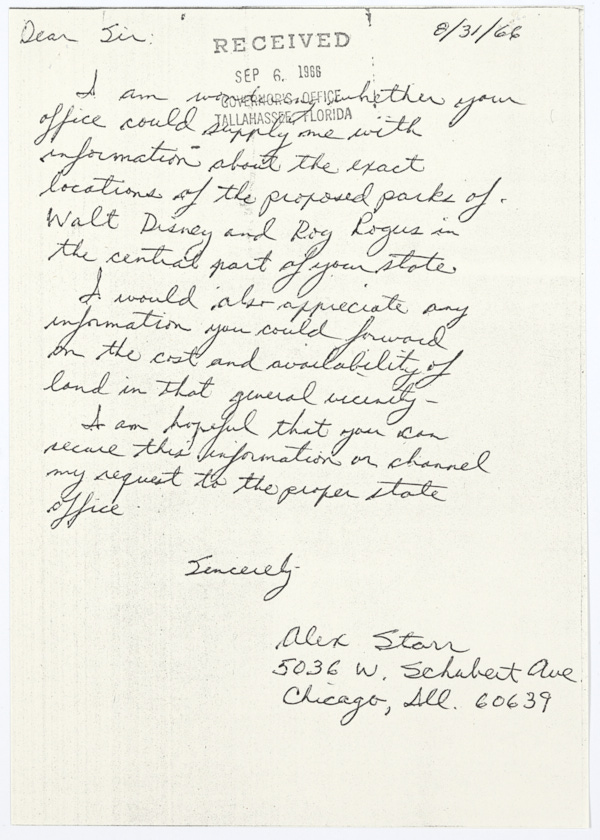 Dear Sir: 8/31/66
RECEIVED
SEP 6, 1966
GOVERNOR'S OFFICE
TALLAHASSEE, FLORIDA
I am wondering whether your
office could supply me with
information about the exact
locations of the proposed parks of
Walt Disney and Roy Rogus in
the central part of your state.
I would also appreciate any
information you could forward
on the cost and availability of
land in that general vicinity -
I am hopeful that you can
secure this information or channel
my request to the proper state
office.
Sincerely
Alex Starr
5036 W. Schubert Ave
Chicago, Ill. 60639